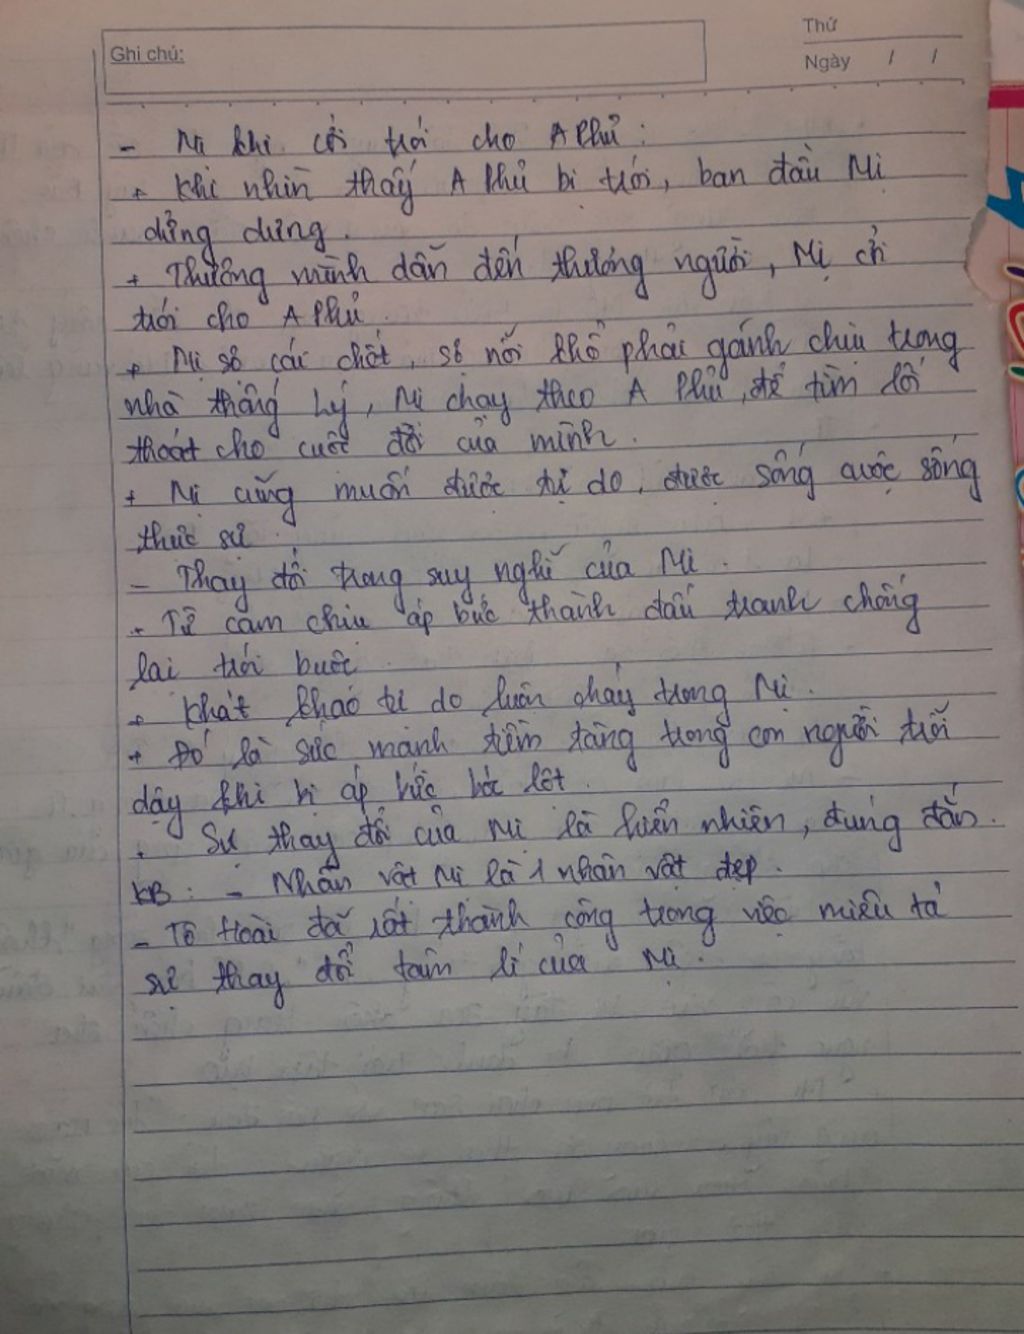 Thứ
Ghi chú:
Ngày / /
- Mị khi cởi trói cho A Phủ:
+ Khi nhìn thấy A Phủ bị trói, ban đầu Mị
dửng dưng.
+ Thương mình dẫn đến thương người, Mị cởi
trói cho A Phủ.
+ Mị sợ cái chết, sợ nỗi khổ phải gánh chịu trong
nhà thống Lý, Mị chạy theo A Phủ, để tìm lối
thoát cho cuộc đời của mình.
+ Mị cũng muốn được tự do, được sống cuộc sống
thực sự.
- Thay đổi trong suy nghĩ của Mị.
+ Từ cam chịu áp bức thành đấu tranh chống
lại trói buộc.
+ Khát khao tự do luôn cháy trong Mị.
+ Đó là sức mạnh tiềm tàng trong con người trỗi
dậy khi bị áp bức bóc lột.
+ Sự thay đổi của Mị là hiển nhiên, đúng đắn.
KB: - Nhân vật Mị là 1 nhân vật đẹp.
- Tô Hoài đã rất thành công trong việc miêu tả
sự thay đổi tâm lí của Mị.